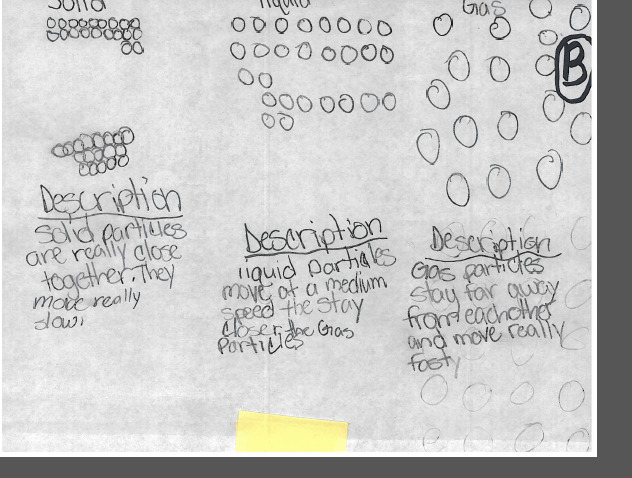 Solid
liquid
Gas
B
Description
solid particles
are really close
together. They
move really
slow.
Description
liquid particles
move at a medium
speed the stay
closer the Gas
Particles
Description
Gas particles
stay far away
from eachother
and move really
fast